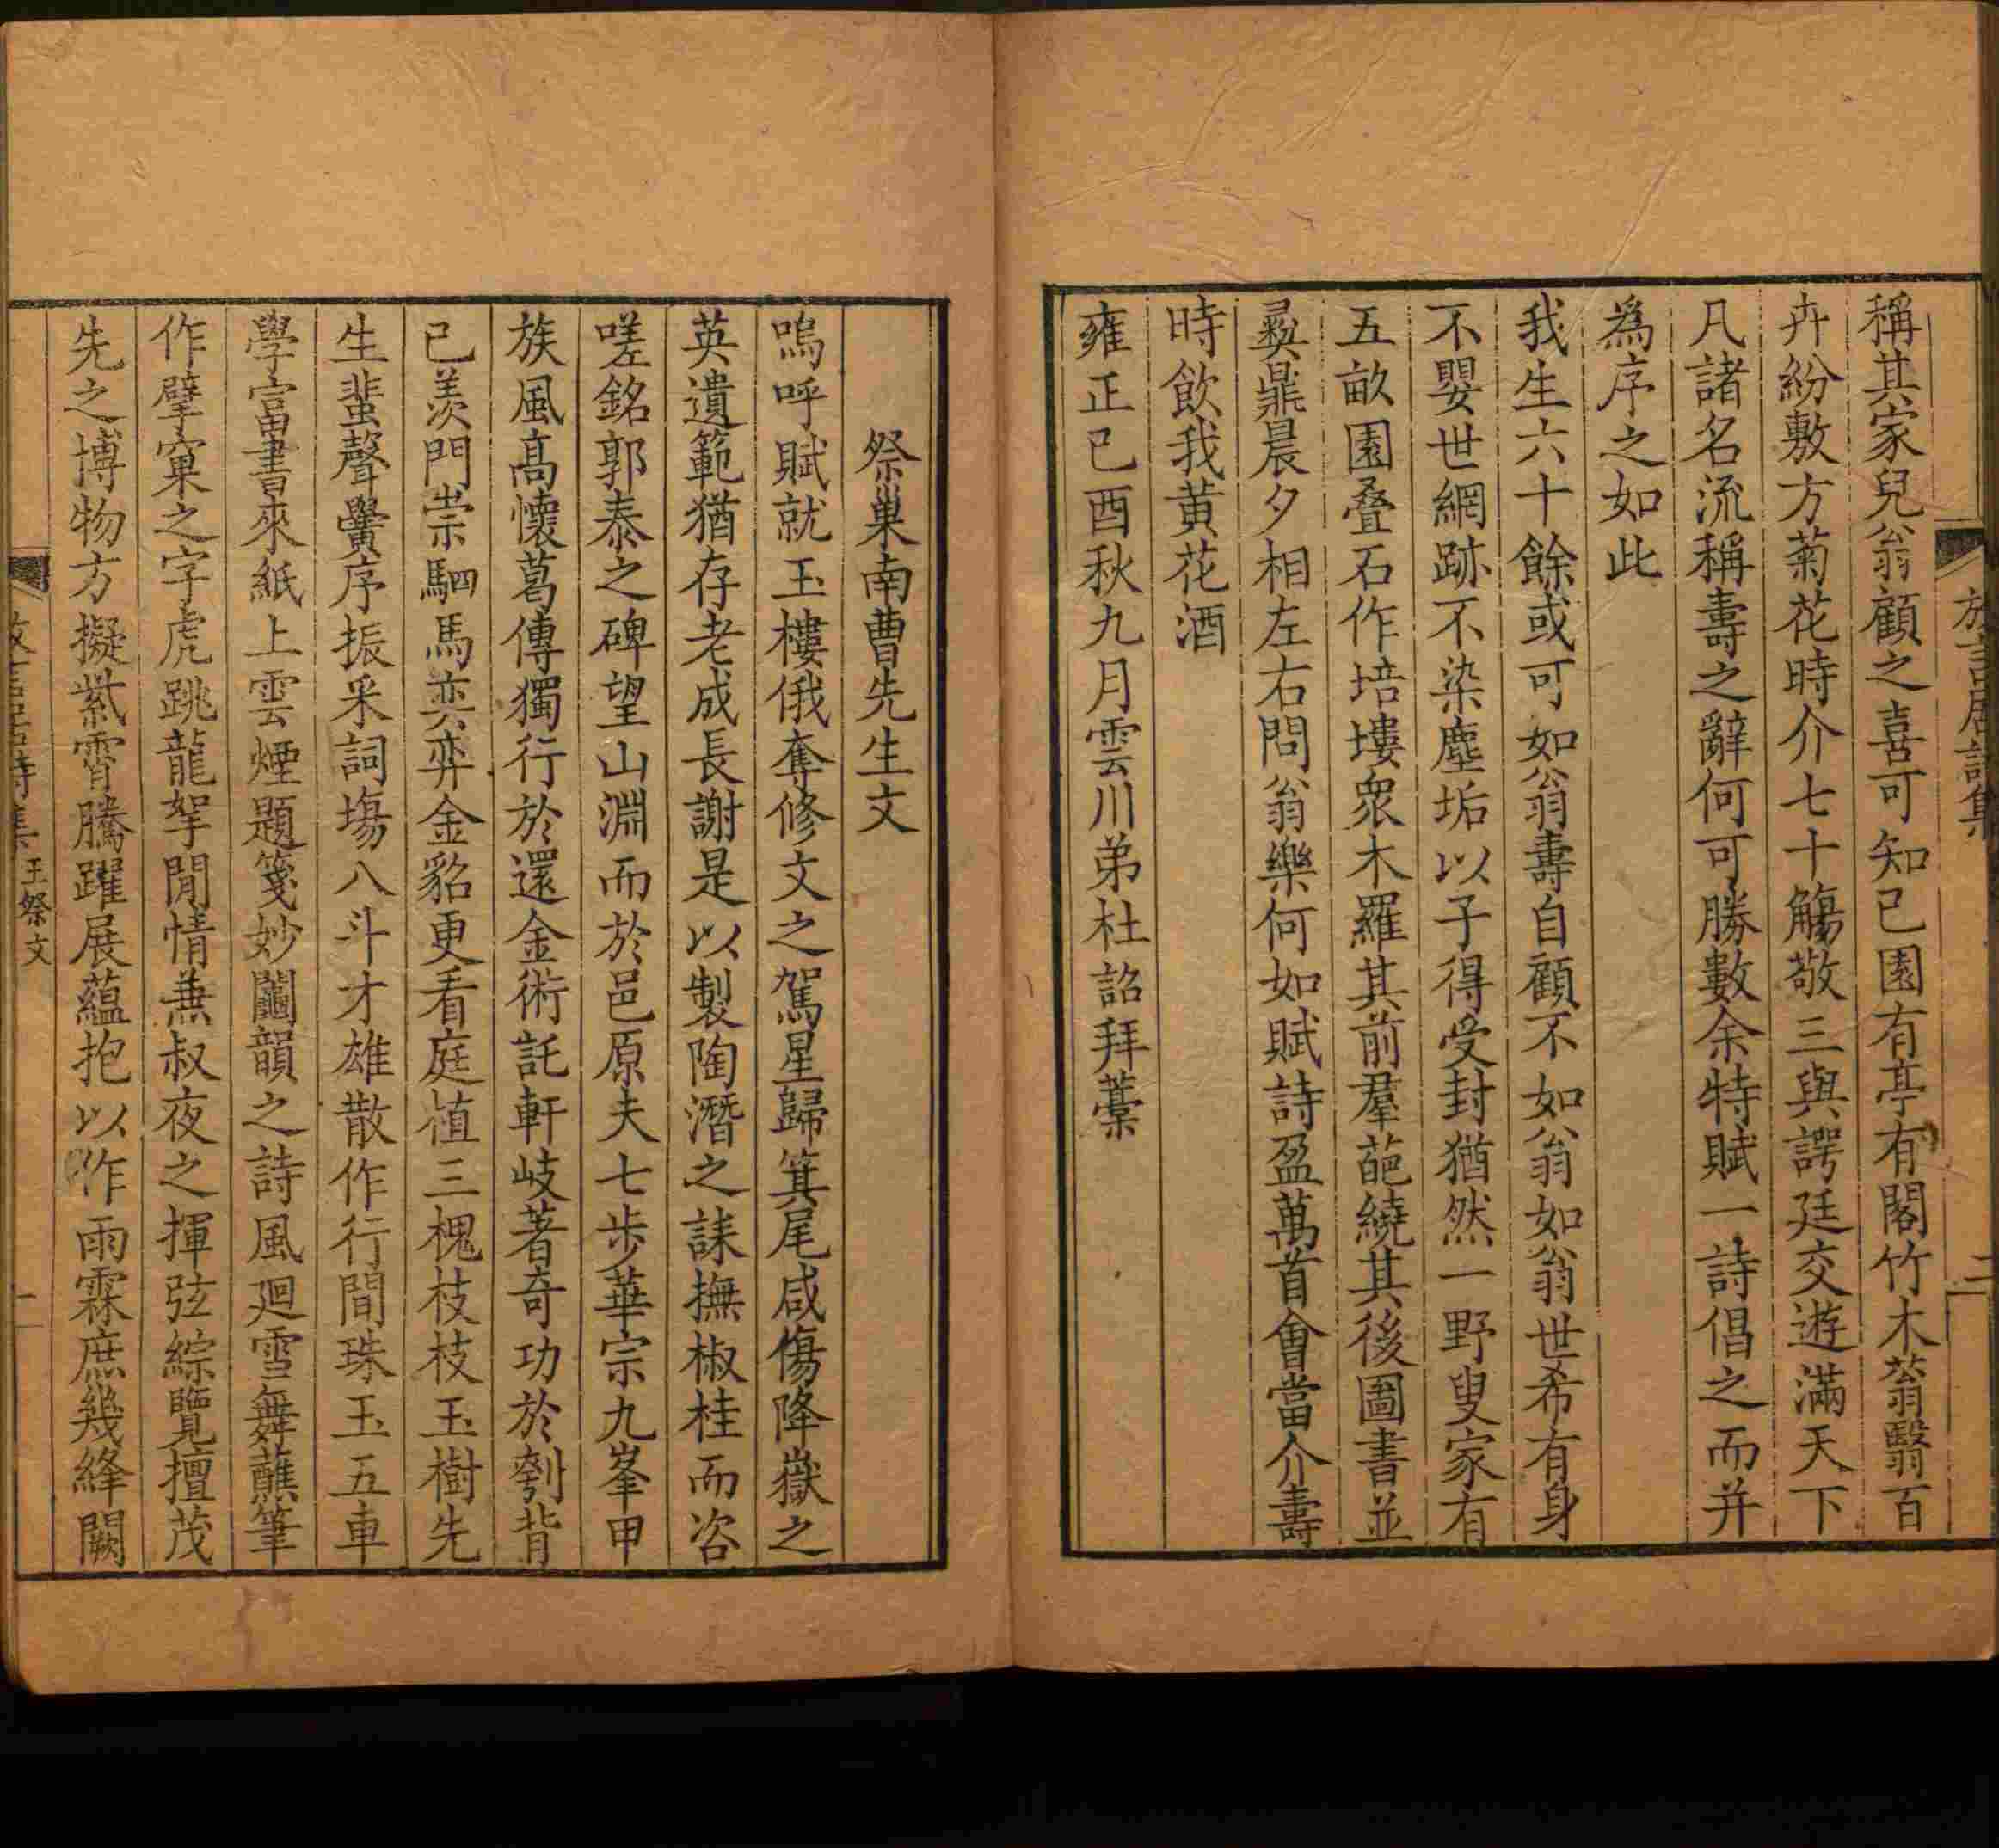 稱其家兒翁顧之喜可知已園有亭有閣竹木蓊翳百
卉紛敷方菊花時介七十觴敬三與諤廷交遊滿天下
凡諸名流稱壽之辭何可勝數余特賦一詩倡之而并
爲序之如此
我生六十餘或可如翁壽自顧不如翁如翁世希有身
不嬰世網跡不染塵垢以子得受封猶然一野叟家有
五畝園叠石作培塿衆木羅其前羣葩繞其後圖書並
彝鼎晨夕相左右問翁樂何如賦詩盈萬首會當介壽
時飲我黃花酒
雍正己酉秋九月雲川弟杜詔拜藁
二
祭巢南曹先生文
嗚呼賦就玉樓俄奪修文之駕星歸箕尾咸傷降嶽之
英遺範猶存老成長謝是以製陶潛之誄撫椒桂而咨
嗟銘郭泰之碑望山淵而於邑原夫七步華宗九峯甲
族風高懷葛傳獨行於還金術託軒岐著奇功於刳背
已羨門崇駟馬奕奕金貂更看庭植三槐枝枝玉樹先
生蜚聲黌序振采詞塲八斗才雄散作行間珠玉五車
學富書來紙上雲煙題箋妙鬪韻之詩風廻雪舞蘸筆
作擘窠之字虎跳龍拏閒情兼叔夜之揮弦綜覽擅茂
先之博物方擬紫霄騰躍展蘊抱以作雨霖庶幾絳闕
詩集 王祭文 一